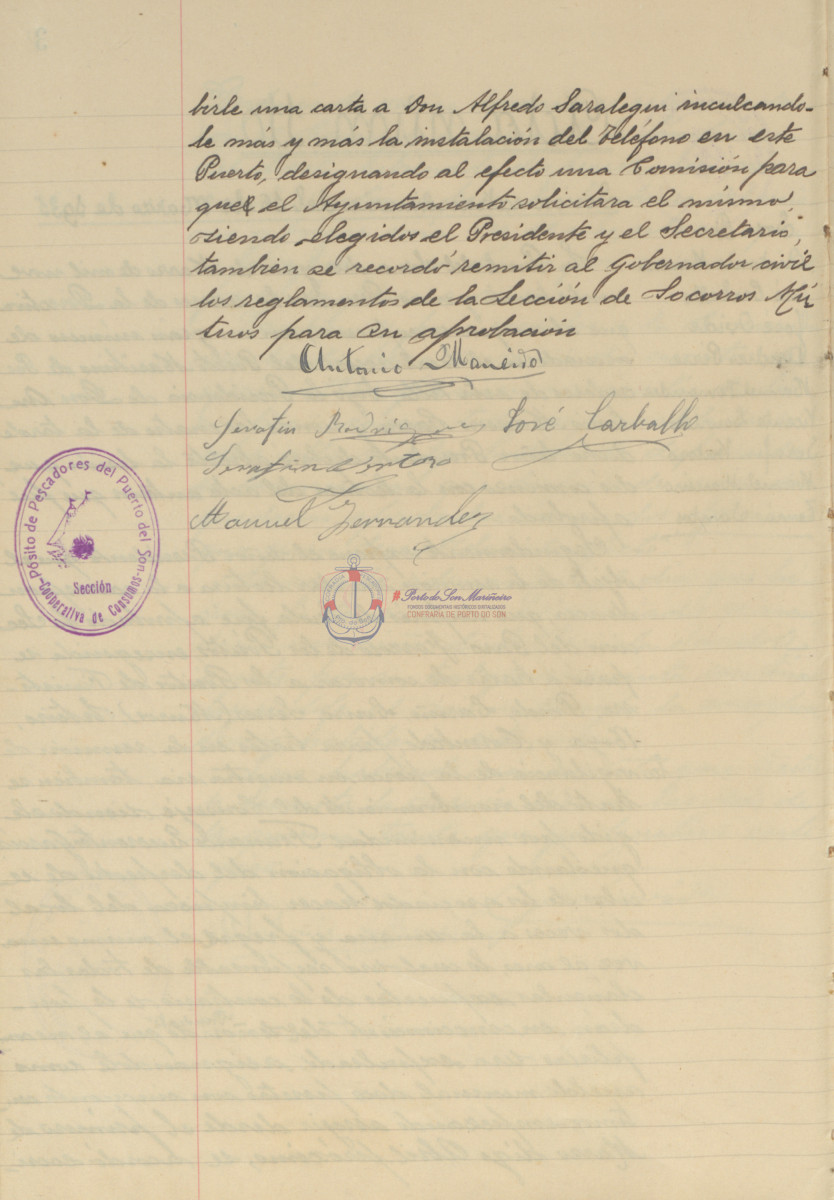 birle una carta a Don Alfredo Saralegui inculcando-
le más y más la instalación del Teléfono en este
Puerto, designando al efecto una Comisión para
que el Ayuntamiento solicitara el mismo,
siendo elegidos el Presidente y el Secretario,
también se recordó remitir al Gobernador civil
los reglamentos de la Sección de Socorros Mú
tuos para su aprobación
Antonio
Serafin Rodriguez José Carballo
Serafin
Manuel Fernandez
Pósito de Pescadores del Puerto del Son
Sección
Cooperativa de Consumos
Porto do Son Mariñeiro
FONDOS DOCUMENTAIS HISTÓRICOS DIXITALIZADOS
CONFRARÍA DE PORTO DO SON